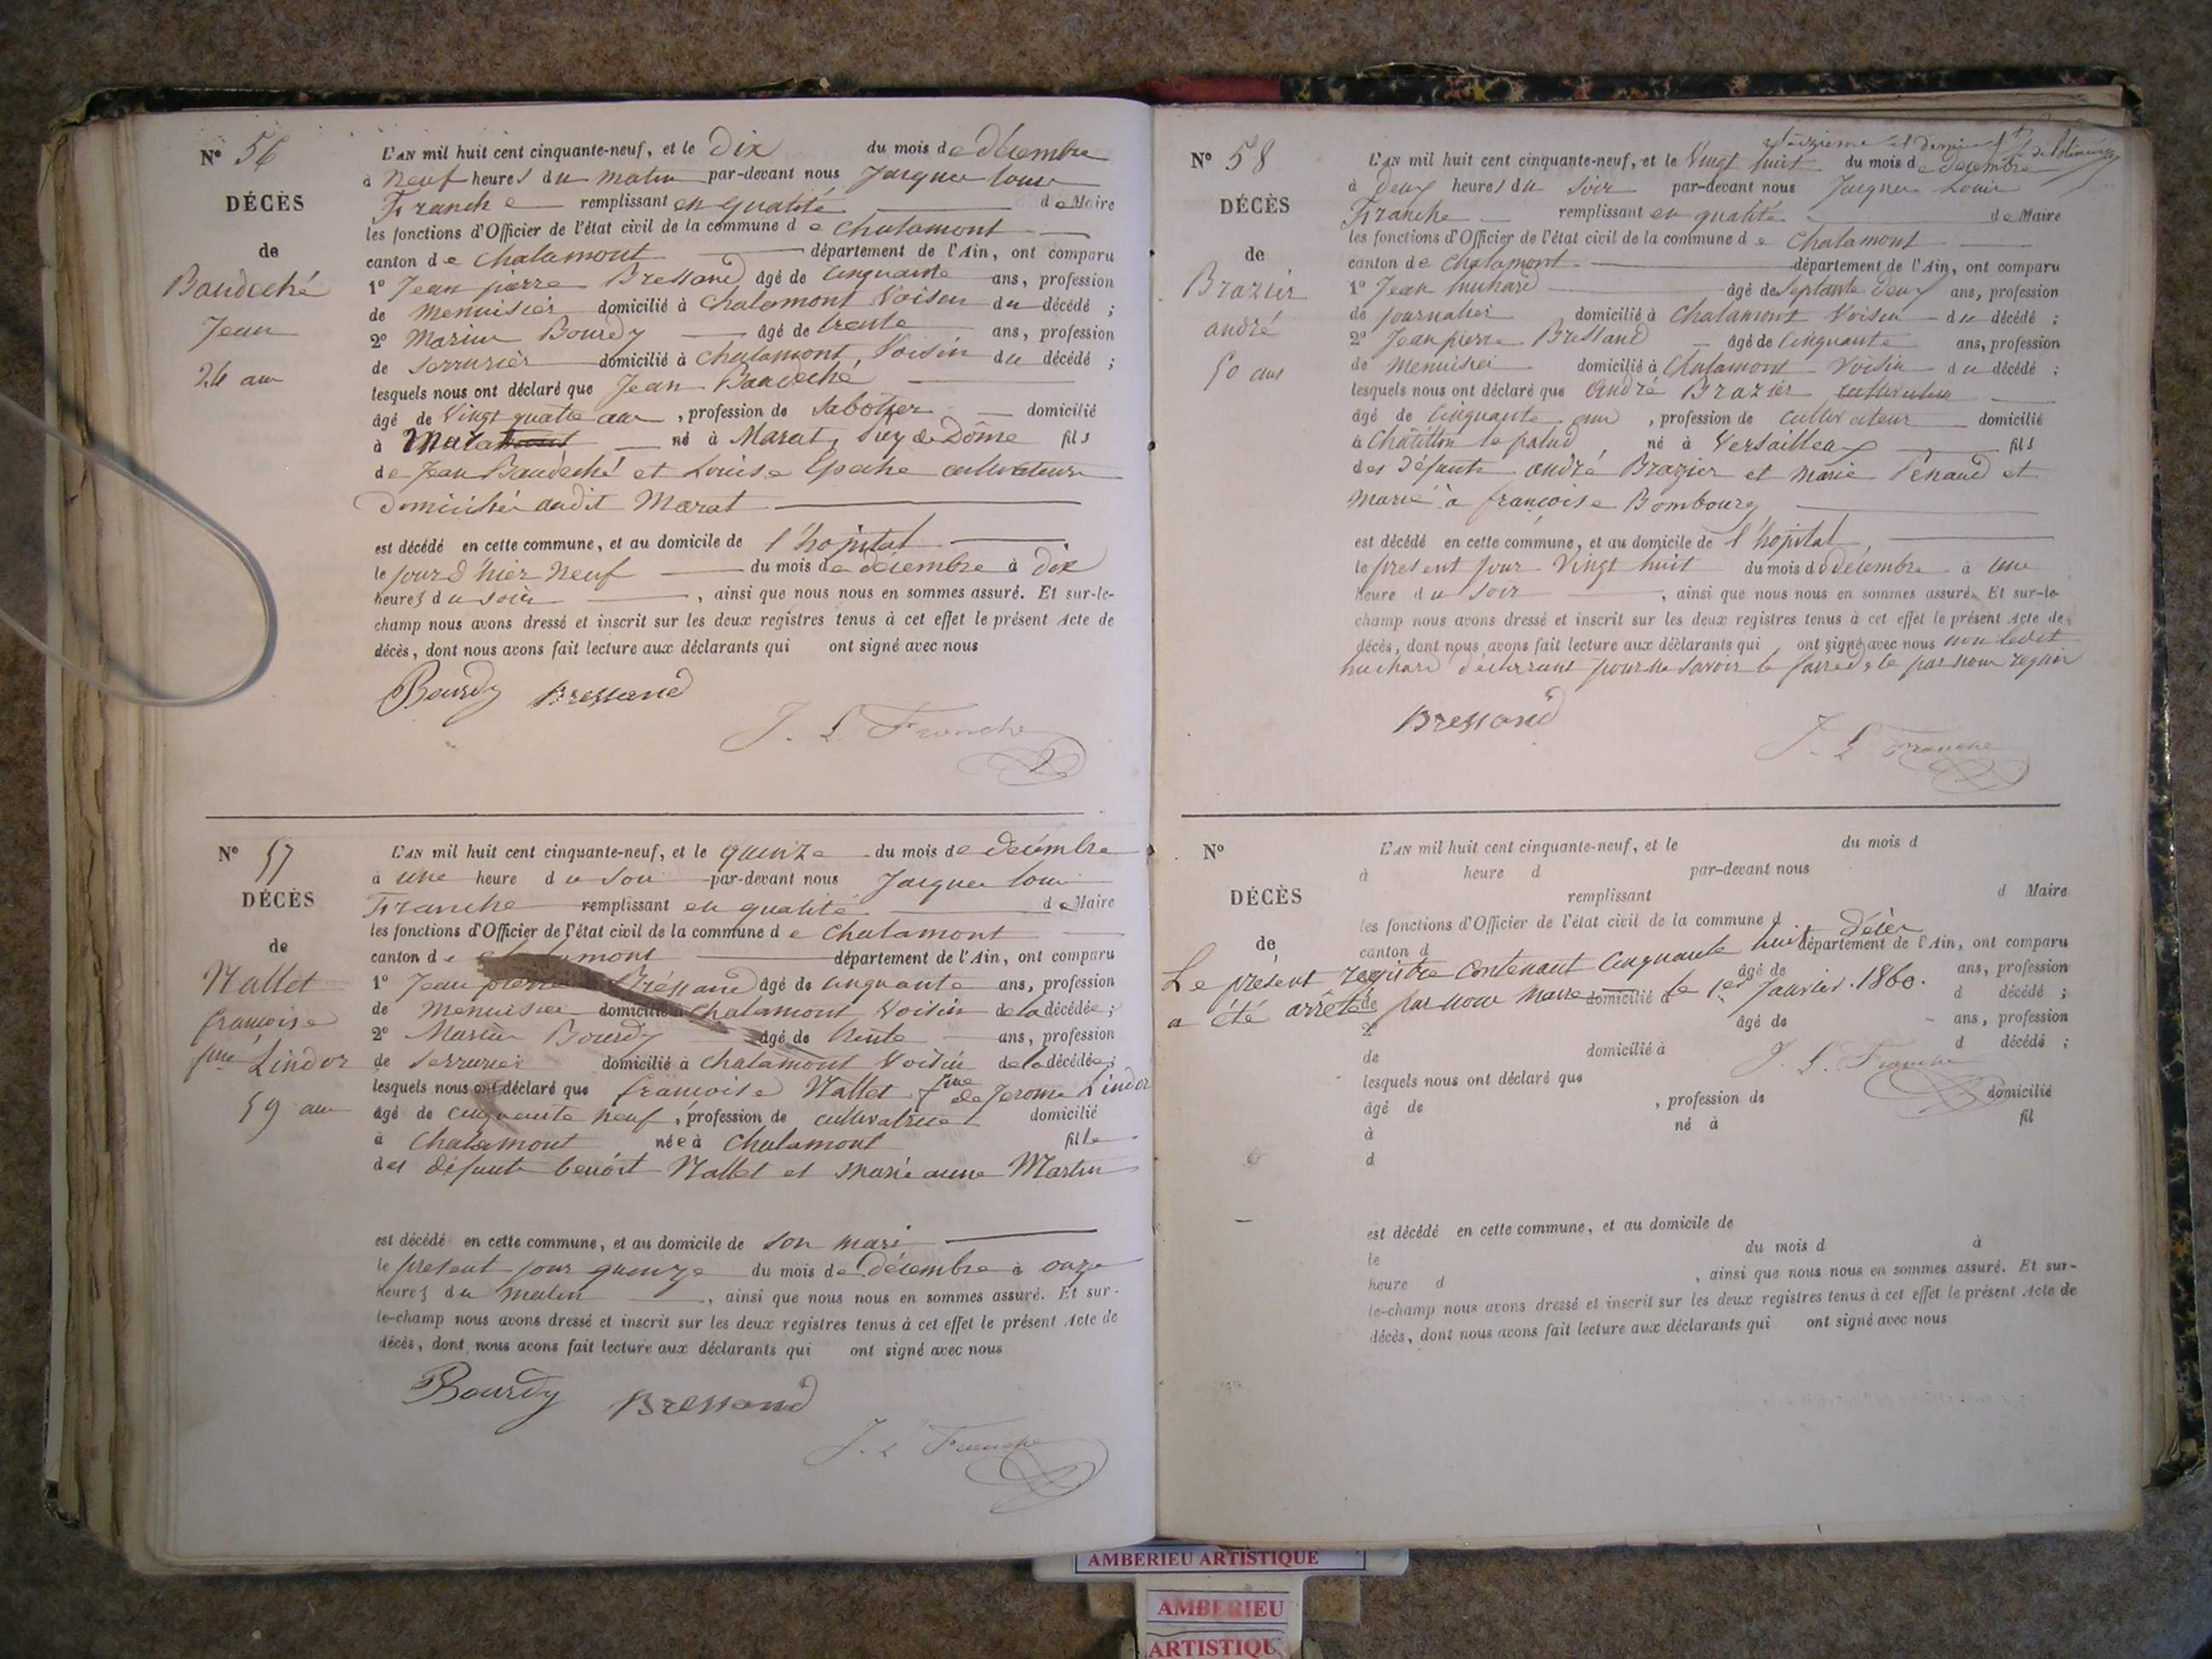 N° 56
DÉCÈS
de
Baudeché
Jean
24 ans
L'AN mil huit cent cinquante-neuf, et le Dix du mois de décembre
à neuf heures du matin par-devant nous Jacques Louis
Franche remplissant en qualité de Maire
les fonctions d'Officier de l'état civil de la commune de Chalamont
canton de Chalamont département de l'Ain, ont comparu
1° Jean pierre Bressand âgé de cinquante ans, profession
de menuisier domicilié à Chalamont Voisin du décédé ;
2° Marius Bourdy âgé de trente ans, profession
de Serrurier domicilié à Chalamont, Voisin du décédé ;
lesquels nous ont déclaré que Jean Baudeché
âgé de Vingt quatre ans, profession de Sabotier domicilié
à né à Marat, Puy de Dôme fils
de Jean Baudeché et Louise cultivateurs
Domiciliés audit Marat
est décédé en cette commune, et au domicile de l'hopital
le jour d'hier neuf du mois de décembre à dix
heures du soir, ainsi que nous nous en sommes assuré. Et sur-le-
champ nous avons dressé et inscrit sur les deux registres tenus à cet effet le présent Acte de
décès, dont nous avons fait lecture aux déclarants qui ont signé avec nous
Bourdy Bressand
J. L. Franche
N° 57
DÉCÈS
de
Mallet
françoise
fme Lindor
59 ans
L'AN mil huit cent cinquante-neuf, et le quinze du mois de décembre
à une heure du soir par-devant nous Jacques Louis
Franche remplissant en qualité de Maire
les fonctions d'Officier de l'état civil de la commune de Chalamont
canton de Chalamont département de l'Ain, ont comparu
1° Jean pierre Bressand âgé de cinquante ans, profession
de Menuisier domicilié à Chalamont Voisin de la décédée ;
2° Marius Bourdy âgé de trente ans, profession
de Serrurier domicilié à Chalamont Voisin de la décédée ;
lesquels nous ont déclaré que françoise Mallet fme de Jerome Lindor
âgé de cinquante neuf, profession de cultivatrice domicilié
à Chalamont née à Chalamont fille
des défunts benoit Mallet et marie anne Martin
est décédé en cette commune, et au domicile de son mari
le présent jour quinze du mois de décembre à onze
heures du matin, ainsi que nous nous en sommes assuré. Et sur-
le-champ nous avons dressé et inscrit sur les deux registres tenus à cet effet le présent Acte de
décès, dont nous avons fait lecture aux déclarants qui ont signé avec nous
Bourdy Bressand
J. L. Franche
N° 58
DÉCÈS
de
Brazier
andré
50 ans
L'AN mil huit cent cinquante-neuf, et le Vingt huit du mois de décembre
à deux heures du Soir par-devant nous Jacques Louis
Franche remplissant en qualité de Maire
les fonctions d'Officier de l'état civil de la commune de Chalamont
canton de Chalamont département de l'Ain, ont comparu
1° Jean huchard âgé de Septante deux ans, profession
de journalier domicilié à Chalamont Voisin du décédé ;
2° Jean pierre Bressand âgé de Cinquante ans, profession
de menuisier domicilié à Chalamont Voisin du décédé ;
lesquels nous ont déclaré que andré Brazier cultivateur
âgé de cinquante ans, profession de cultivateur domicilié
à Châtillon la palud né à Versailleux fils
des défunts andré Brazier et marie Penaud et
Marié à françoise Bombourg
est décédé en cette commune, et au domicile de l'hopital
le present jour Vingt huit du mois de décembre à une
heure du Soir, ainsi que nous nous en sommes assuré. Et sur-le-
champ nous avons dressé et inscrit sur les deux registres tenus à cet effet le présent Acte de
décès, dont nous avons fait lecture aux déclarants qui ont signé avec nous non ledit
huchard déclarant pour ne savoir le faire de ce par nous requis
Bressand
J. L. Franche
N°
DÉCÈS
de
L'AN mil huit cent cinquante-neuf, et le du mois d
à heure d par-devant nous
remplissant d Maire
les fonctions d'Officier de l'état civil de la commune d
canton d département de l'Ain, ont comparu
Le présent registre contenant cinquante huit décès
âgé de ans, profession
a été arrêté par nous maire le 1er Janvier 1860.
de domicilié à d décédé ;
2° âgé de ans, profession
de domicilié à d décédé ;
J. L. Franche
lesquels nous ont déclaré que
âgé de , profession de domicilié
à né à fil
d
est décédé en cette commune, et au domicile de
le du mois d à
heure d , ainsi que nous nous en sommes assuré. Et sur-
le-champ nous avons dressé et inscrit sur les deux registres tenus à cet effet le présent Acte de
décès, dont nous avons fait lecture aux déclarants qui ont signé avec nous
AMBERIEU ARTISTIQUE
AMBERIEU
ARTISTIQUE